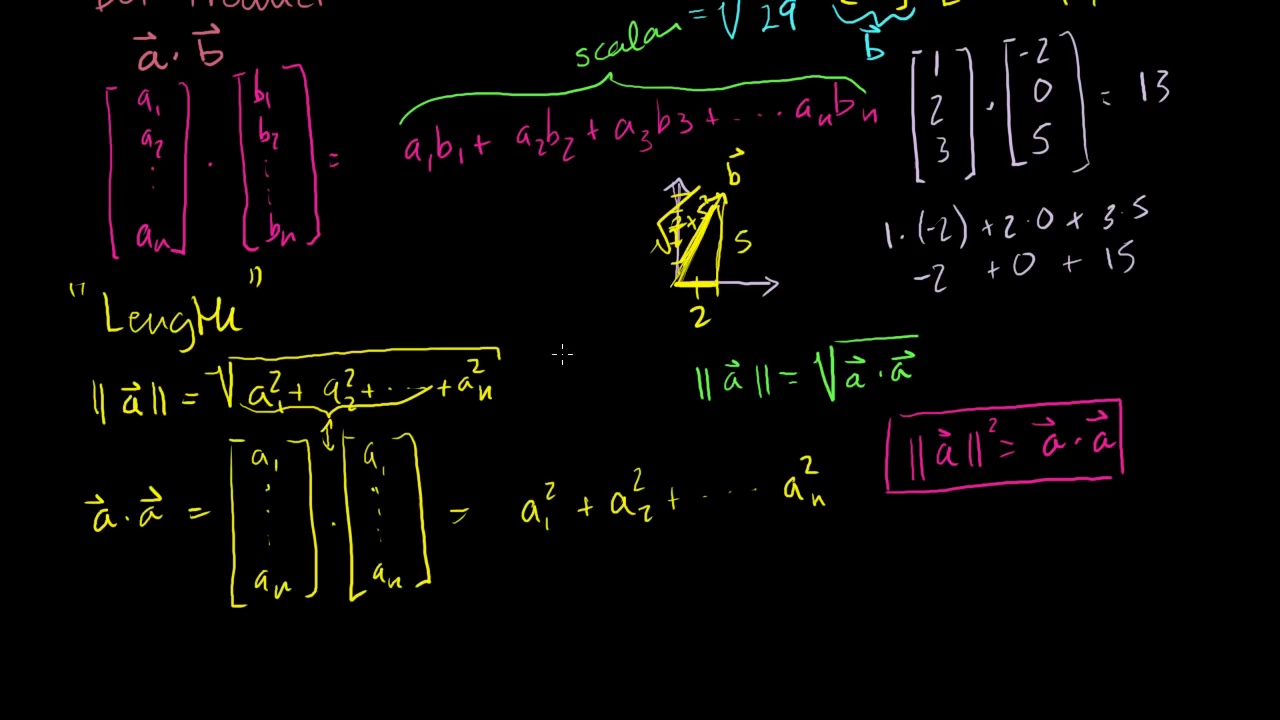 Dot Product
a⃗ · b⃗
[a₁ a₂ ⋮ aₙ] · [b₁ b₂ ⋮ bₙ] = a₁b₁ + a₂b₂ + a₃b₃ + ···· aₙbₙ
scalar
= √29
b⃗
[1 2 3] · [-2 0 5] = 13
1·(-2) + 2·0 + 3·5
-2 + 0 + 15
b⃗
5
2
"Length"
||a⃗|| = √(a₁² + a₂² + ··· + aₙ²)
||a⃗|| = √(a⃗ · a⃗)
||a⃗||² = a⃗ · a⃗
a⃗ · a⃗ = [a₁ ⋮ aₙ] · [a₁ ⋮ aₙ] = a₁² + a₂² + ···· aₙ²